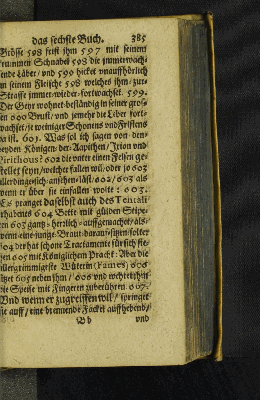 das sechste Buch. 385
Grösse 598 frist ihm 597 mit seinem
krummen Schnabel 598 die immerwach-
ende Läber / und 599 hicket unauffhörlich
in seinem Fleisch 598 welches ihm / zur
Straffe immer-wieder-fortwachset. 599.
Der Geyr wohnet-beständig in seiner gros-
sen 600 Brust / und jemehr die Liber fort-
wachset / je weiniger Schonens und Fristens
da ist. 601. Was sol ich sagen von den
beyden Königen / der-Lapithen / Ixion und
Pirithous? 602 die unter einen Felsen ge-
stellet seyn / welcher fallen wil / oder 10603
allerdinge-sich-ansehen-läst / 602 / 603 als
wenn er über sie einfallen wolte: 603.
Es pranget daselbst auch des
erhabenes 604 Bette mit gülden Stipe-
len 603 gantz-herrlich-auffgemachet / als-
wenn-eine-junge-Braut-darauf-sitzen solte
604 der hat schöne Tractamente für sich ste-
hen 605 mit Königlichem Pracht: Aber die
allergrimmigste Wüterin (Fames) 606
sitzet 605 neben ihm / 606 und wehret ihm
die Speise mit Fingeren zuberühren 607.
Und wenn er zugreiffen wil / springet
sie auff / eine brennende Fackel auffhebend /
Bb und